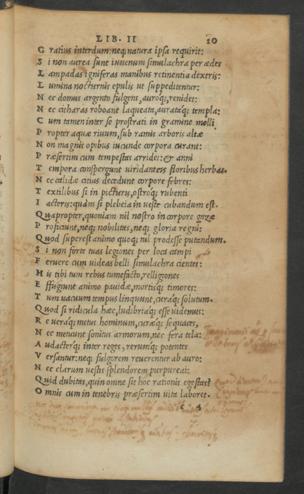 LIB. II 20
G ratius interdum: neq; natura ipsa requirit:
S i non aurea sunt iuuenum simulachra per ædes
L ampadas igniferas manibus retinentia dexteris:
L umina nocturnis epulis ut suppeditentur:
N ec domus argento fulgens, auroq; renidet:
N ec citharas reboant laqueata, aurataq; templa:
C um tamen inter se prostrati in gramine molli,
P ropter aquæ riuum, sub ramis arboris altæ
N on magnis opibus iucunde corpora curant:
P ræsertim cum tempestas arridet: & anni
T empora conspergunt uiridanteis floribus herbas.
N ec calidæ citius decedunt corpore febres:
T extilibus si in picturis, ostroq; rubenti
I acteris: quam si plebeia in ueste cubandum est.
Q uapropter, quoniam nil nostro in corpore gazæ
P roficiunt, neq; nobilitas, neq; gloria regni:
Q uod superest animo quoq; nil prodesse putendum.
S i non forte tuas legiones per loca campi
F eruere cum uideas belli simulachra cientes:
H is tibi tum rebus timefactæ, relligiones
E ffugiunt animo pauidæ, mortisq; timores:
T um uacuum tempus linquunt, curaq; solutum.
Q uod si ridicula hæc, ludibriaq; esse uidemus:
R e ueraq; metus hominum, curæq; sequaces,
N ec metuunt sonitus armorum, nec fera tela:
A udacterq; inter reges, rerumq; potentes
V ersantur: neq; fulgorem reuerentur ab auro:
N ec clarum uestis splendorem purpureai:
Q uid dubitas, quin omne sit hoc rationis egestas?
O mnis cum in tenebris præsertim uita laboret.